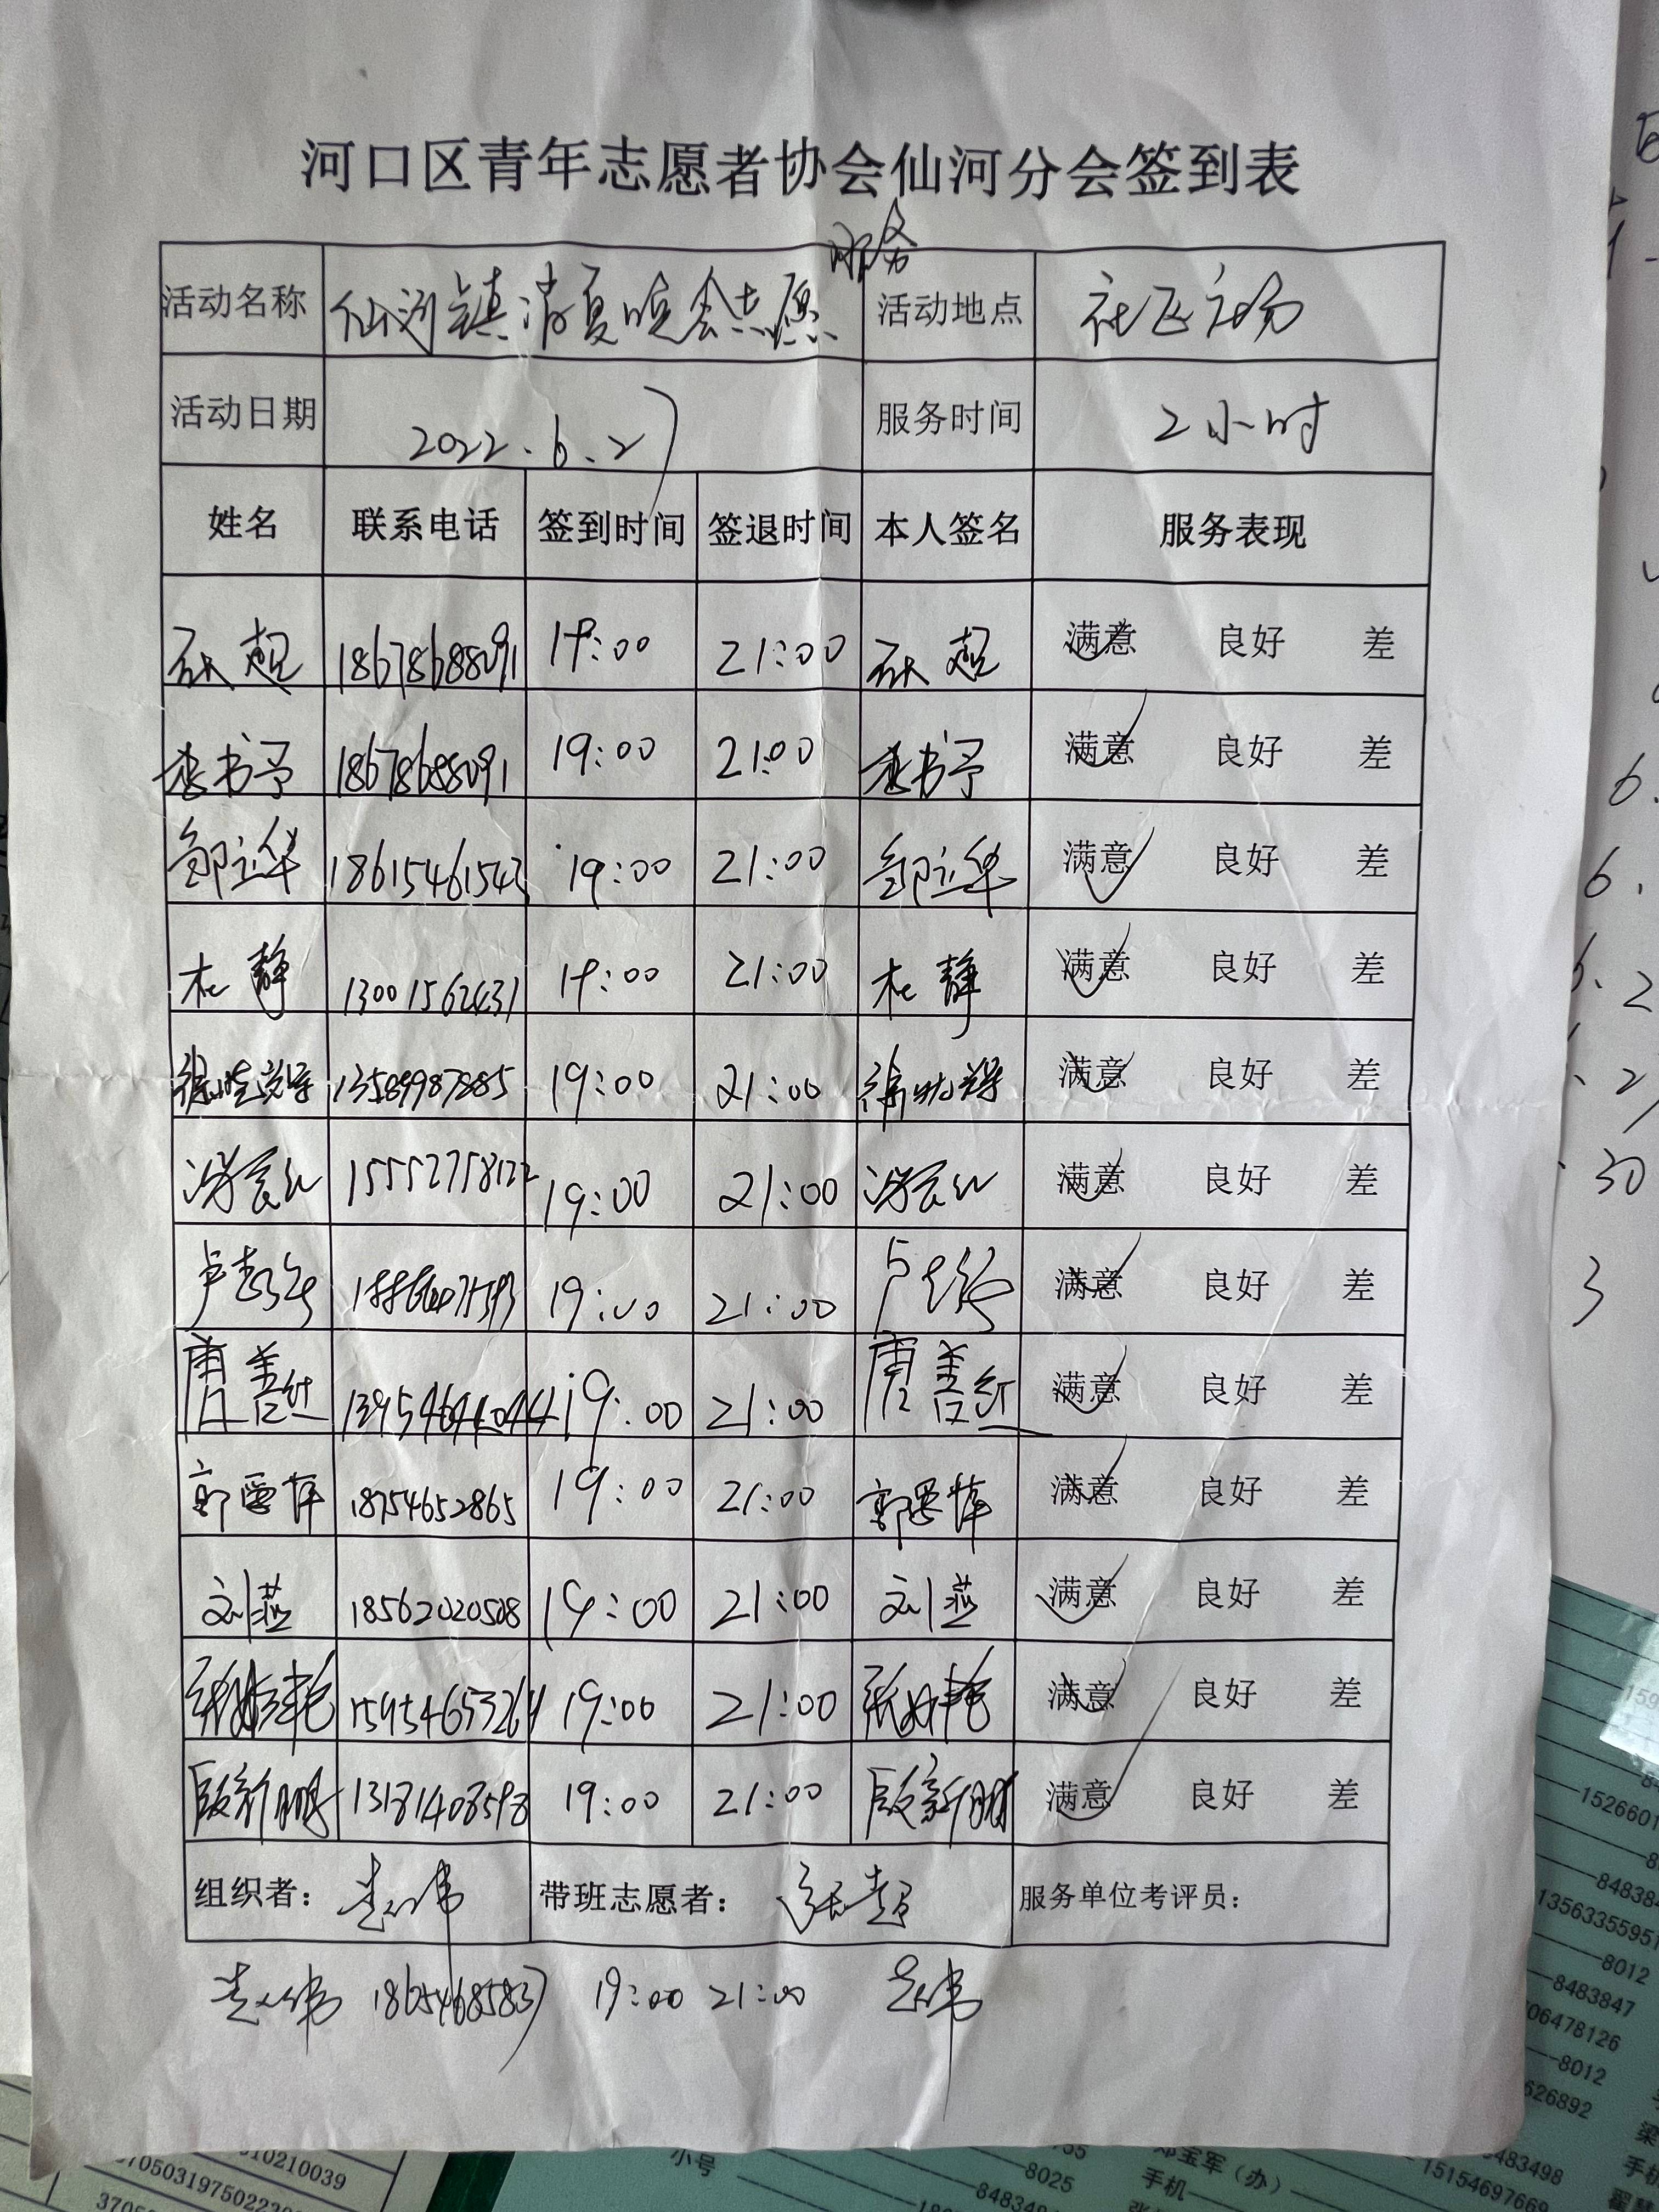 河口区青年志愿者协会仙河分会签到表
活动名称 仙河镇消夏晚会志愿服务 活动地点 社区广场
活动日期 2022.6.27 服务时间 2小时
姓名 联系电话 签到时间 签退时间 本人签名 服务表现
超 18678688091 19:00 21:00 超 满意 良好 差
李书予 18678688091 19:00 21:00 李书予 满意 良好 差
邹立华 18615461543 19:00 21:00 邹立华 满意 良好 差
杜静 13001562431 19:00 21:00 杜静 满意 良好 差
徐 13589987885 19:00 21:00 徐 满意 良好 差
冯 15552758122 19:00 21:00 冯 满意 良好 差
卢 19:00 21:00 卢 满意 良好 差
唐善红 13954644044 19:00 21:00 唐善红 满意 良好 差
郭 萍 18754652865 19:00 21:00 郭 萍 满意 良好 差
刘燕 18562020508 19:00 21:00 刘燕 满意 良好 差
张 艳 15954653264 19:00 21:00 张 艳 满意 良好 差
段新鹏 13181408598 19:00 21:00 段新鹏 满意 良好 差
组织者： 带班志愿者： 张超 服务单位考评员：
18654685837 19:00 21:00
6.
6.
6.2
30
3
1526601
84838
13563355951
8012
8483847
06478126
8012
526892
483498
15154697669
小号
8025
邓宝军（办）
手机
10210039
7050319750223
3705